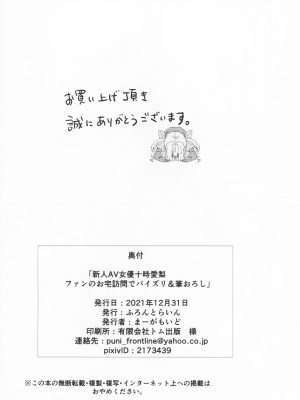 お買い上げ頂き
誠にありがとうございます。
奥付
「新人AV女優十時愛梨
ファンのお宅訪問でパイズリ&筆おろし」
発行日:2021年12月31日
発行:ふろんとらいん
発行者:まーがもいど
印刷所:有限会社トム出版 様
連絡先:puni_frontline@yahoo.co.jp
pixivID:2173439
※この本の無断転載・複製・複写・インターネット上への掲載は
おやめください。